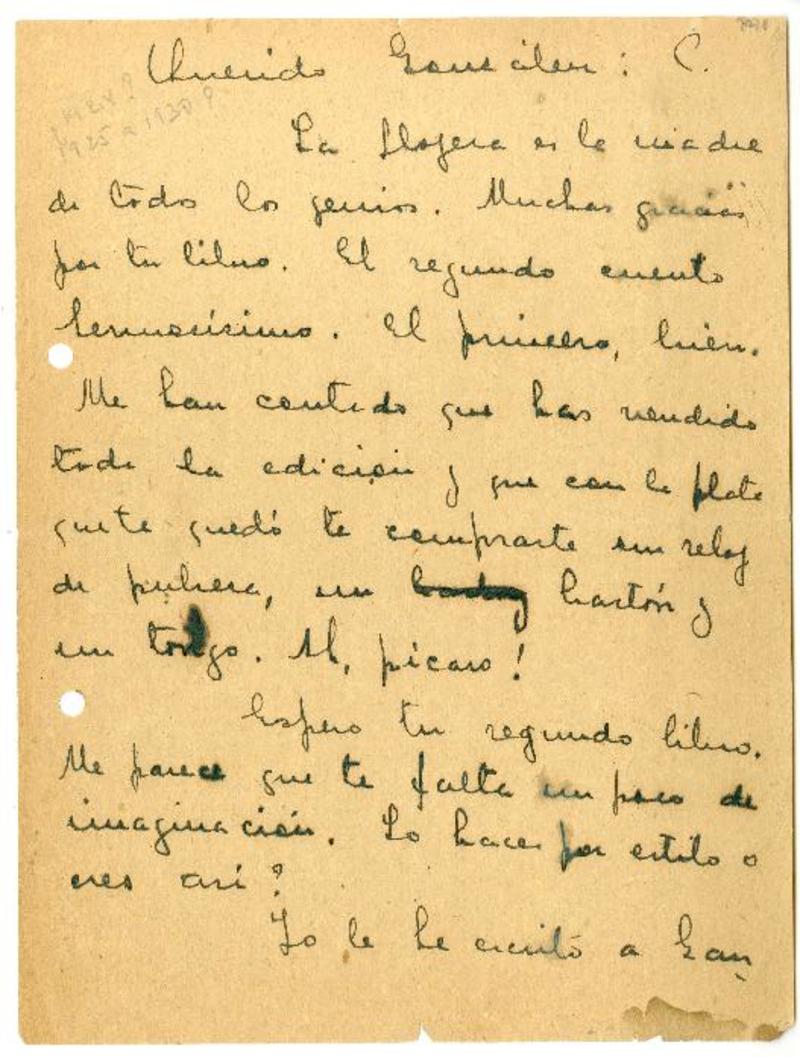 Querido González: C.
La flojera es la madre
de todos los genios. Muchas gracias
por tu libro. El segundo cuento
hermosísimo. El primero, bien.
Me han contado que has vendido
toda la edición y que con la plata
que te quedó te compraste un reloj
de pulsera, un bastón y
un tongo. Ah, pícaro!
Espero tu segundo libro.
Me parece que te falta un poco de
imaginación. Lo haces por estilo o
eres así?
Yo le he escrito a Gon
1925 a 1930?